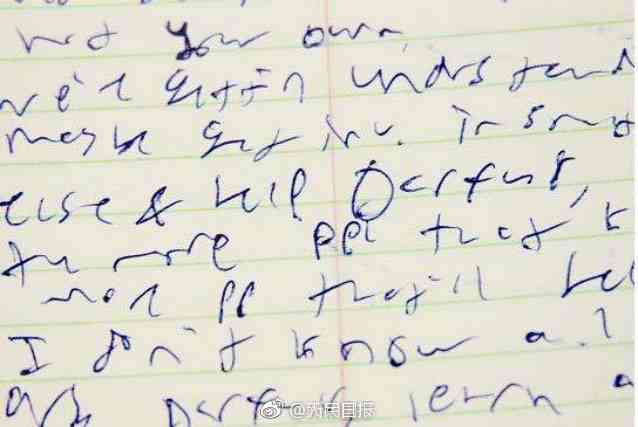 not your own
we'd gettin understand
maybe get inv. in smt
else & help Darfur,
the more ppl that k
more pp that'll hel
I don't know a.l
Darfur, learn a